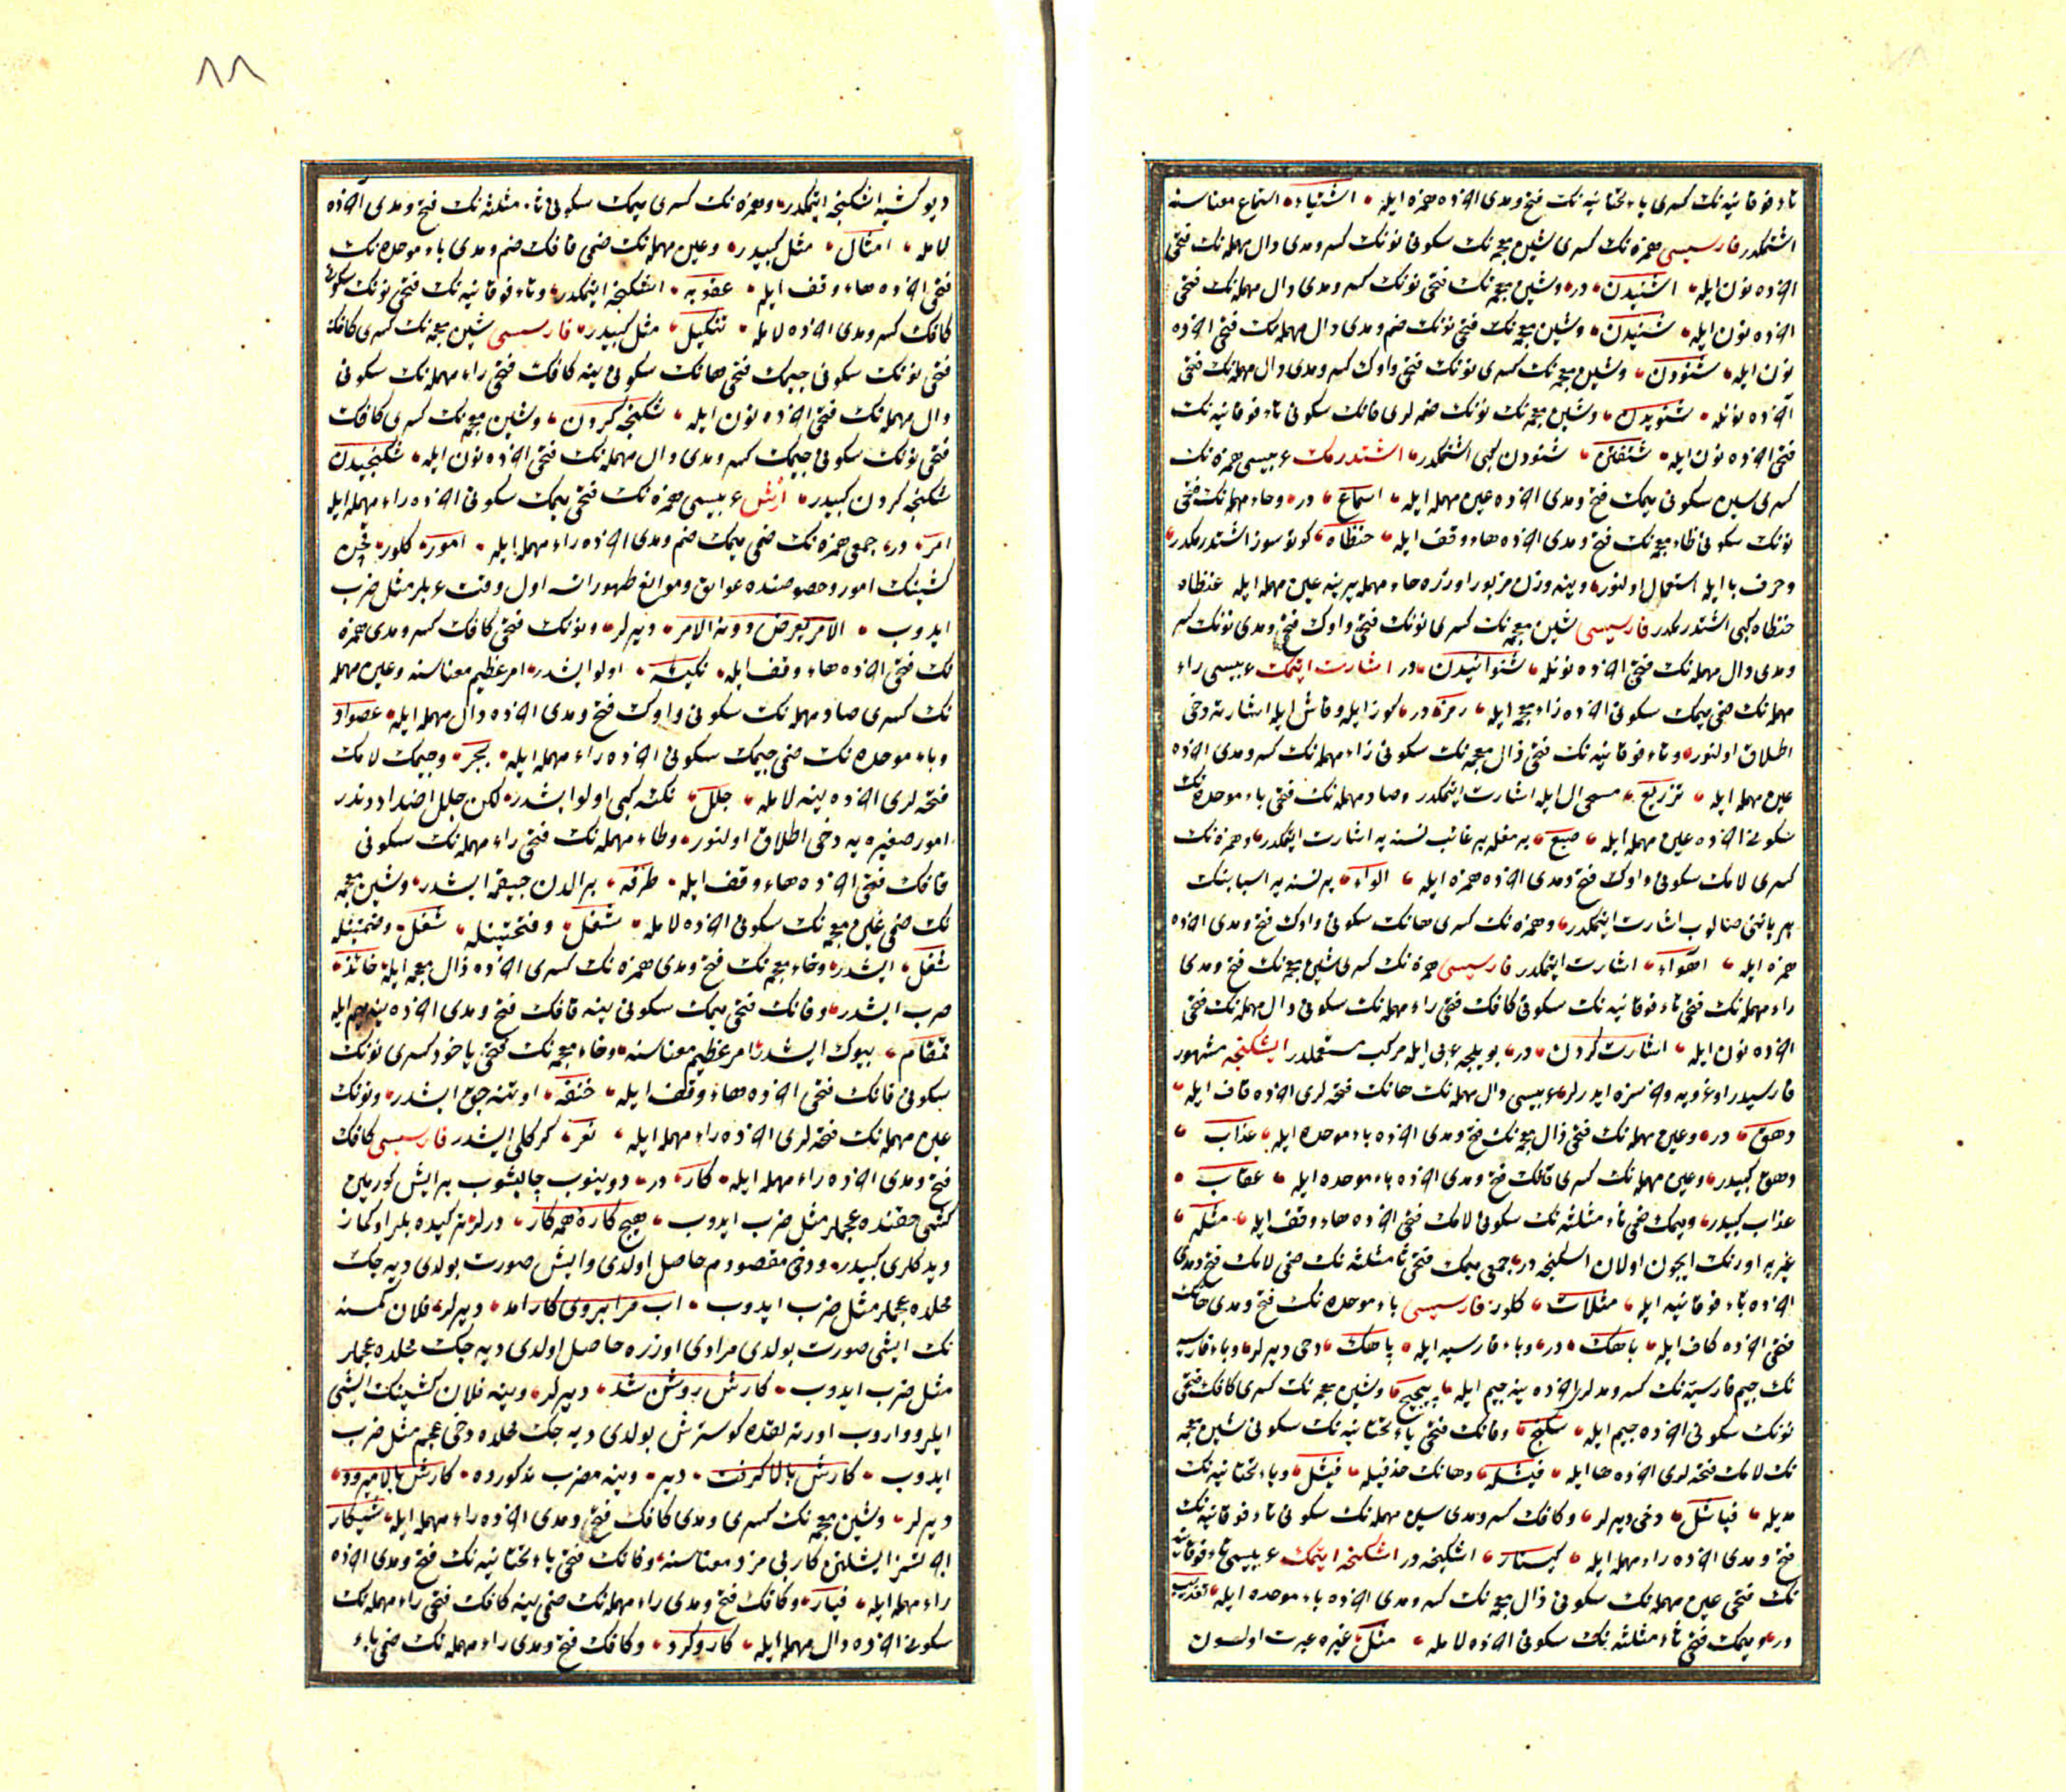 تاء فوقانیه نك كسری یاء تحتانیه نك فتح و مدی آخرده همزه ایله اشتیاء استماع معناسنه
اشتمكدر فارسیسی همزه نك كسری شین معجمه نك سكونی نونك كسر و مدی دال مهمله نك فتحی
آخرده نون ایله اشنیدن در وشین معجمه نك فتحی نونك كسر و مدی دال مهمله نك فتحی
آخرده نون ایله شنیدن وشین معجمه نك فتحی نونك ضم و مدی دال مهمله نك فتحی آخرده
نون ایله شنودن وشین معجمه نك كسری نونك فتحی واوك كسر و مدی دال مهمله نك فتحی
آخرده نونله شنویدن وشین معجمه نك نونك ضمه لری فانك سكونی تاء فوقانیه نك
فتحی آخرده نون ایله شنفتن شنودن كبی اشتمكدر اشتدرمك عربیسی همزه نك
كسری سین سكونی میمك فتح و مدی آخرده عین مهمله ایله اسماع در وحاء مهمله نك فتحی
نونك سكونی ظاء معجمه نك فتح و مدی آخرده هاء وقف ایله حنظاه كوتو سوز اشتدرمكدر
وحرف با ایله استعمال اولنور وینه وزن مزبور اوزره حاء مهمله یرینه عین مهمله ایله عنظاه
حنظاه كبی اشتدرمكدر فارسیسی شین معجمه نك كسری نونك فتحی واوك فتح و مدی نونك كسر
و مدی دال مهمله نك فتحی آخرده نونله شنوانیدن در اشارت ایتمك عربیسی راء
مهمله نك ضمی میمك سكونی آخرده زاء معجمه ایله رمز در كوز ایله وقاش ایله اشارته دخی
اطلاق اولنور وتاء فوقانیه نك فتحی ذال معجمه نك سكونی راء مهمله نك كسر و مدی آخرده
عین مهمله ایله تزریع مسمی ال ایله اشارت ایتمكدر وصاد مهمله نك فتحی باء موحده نك
سكونی آخرده عین مهمله ایله صبع بر مغله بر غائب نسنه یه اشارت ایتمكدر وهمزه نك
كسری لامك سكونی واوك فتح و مدی آخرده همزه ایله الواء بر نسنه یه اسبابنك
اشارت ایتمكدر وهمزه نك كسری هانك سكونی واوك فتح و مدی آخرده
همزه ایله اهواء اشارت ایتمكدر فارسیسی همزه نك كسری شین معجمه نك فتح و مدی
راء مهمله نك فتحی تاء فوقانیه نك سكونی كافك فتحی راء مهمله نك سكونی دال مهمله نك فتحی
آخرده نون ایله اشارت كردن در بویلجه عربی ایله مركب مستعملدر اشكنجه مشهور
فارسیدر ایدرلر عربیسی دال مهمله نك هانك فتحه لری آخرده قاف ایله
دهق در وعین مهمله نك فتحی ذال معجمه نك فتح و مدی آخرده باء موحده ایله عذاب
دهق كبیدر وعین مهمله نك كسری قافك فتح و مدی آخرده باء موحده ایله عقاب
عذاب كبیدر ومیمك ضمی ثاء مثلثه نك سكونی لامك فتحی آخرده هاء وقف ایله مثله
ایچون اولان اشكنجه در جمعی میمك فتحی ثا مثلثه نك ضمی لامك فتح و مدی
آخرده تاء فوقانیه ایله مثلات كلور فارسیسی باء موحده نك فتح و مدی هانك
فتحی آخرده كاف ایله باهك در وباء فارسیه ایله پاهك دخی دیرلر وباء فارسیه
نك جیم فارسیه نك كسر و مدلری آخرده ینه جیم ایله پیچیچ وشین معجمه نك كسری كافك فتحی
نونك سكونی آخرده جیم ایله شكنج وفانك فتحی یاء تحتانیه نك سكونی شین معجمه
نك لامك فتحه لری آخرده ها ایله فیشله وهانك حذفیله فیشل ویاء تحتانیه نك
مدیله فیاشل دخی دیرلر وكافك كسر و مدی سین مهمله نك سكونی تاء فوقانیه نك
فتح و مدی آخرده راء مهمله ایله كیستار اشكنجه در اشكنجه ایتمك عربیسی تاء فوقانیه
نك فتحی عین مهمله نك سكونی ذال معجمه نك كسر و مدی آخرده باء موحده ایله تعذیب
در ومیمك فتحی ثاء مثلثه نك سكونی آخرده لامله مثل غیره عبرت اولسون
٨٨
دیو كشیه اشكنجه ایتمكدر وهمزه نك كسری میمك سكونی ثاء مثلثه نك فتح و مدی آخرده
لامله امثال مثل كبیدر وعین مهمله نك ضمی قافك ضم و مدی باء موحده نك
فتحی آخرده هاء وقف ایله عقوبه اشكنجه ایتمكدر وتاء فوقانیه نك فتحی نونك سكونی
كافك كسر و مدی آخرده لامله تنكیل مثل كبیدر فارسیسی شین معجمه نك كسری كافك
فتحی نونك سكونی جیمك فتحی هانك سكونی ینه كافك فتحی راء مهمله نك سكونی
دال مهمله نك فتحی آخرده نون ایله شكنجه كردن وشین معجمه نك كسری كافك
فتحی نونك سكونی جیمك كسر و مدی دال مهمله نك فتحی آخرده نون ایله شكنجیدن
شكنجه كردن كبیدر ایش عربیسی همزه نك فتحی میمك سكونی آخرده راء مهمله ایله
امر در جمعی همزه نك ضمی میمك ضم و مدی آخرده راء مهمله ایله امور كلور
كشینك امور وخصوصنده عوایق وموانع ظهور اول وقت عربلر مثل ضرب
ایدوب الامر یعرض دونه الامر دیرلر ونونك فتحی كافك كسر و مدی همزه
نك فتحی آخرده هاء وقف ایله نكیئه اولو ایشدر امر عظیم معناسنه وعین مهمله
نك كسری صاد مهمله نك سكونی واوك فتح و مدی آخرده دال مهمله ایله عصواد
وباء موحده نك ضمی جیمك سكونی آخرده راء مهمله ایله بجر وجیمك لامك
فتحه لری آخرده ینه لامله جلل نكئه كبی اولو ایشدر لكن جلل اضداددندر
امور صغیره یه دخی اطلاق اولنور وطاء مهمله نك فتحی راء مهمله نك سكونی
قافك فتحی آخرده هاء وقف ایله طرقه بر الدن چیقمه ایشدر وشین معجمه
نك ضمی غین معجمه نك سكونی آخرده لامله شغل وفتحتینله شغل وضمتینله
شغل ایشدر وخاء معجمه نك فتح و مدی همزه نك كسری آخرده ذال معجمه ایله خائذ
حرب ایشدر وقافك فتحی میمك سكونی ینه قافك فتح و مدی آخرده ینه میم ایله
قمقام بیوك ایشدر امر عظیم معناسنه وخاء معجمه نك فتحی یاخود كسری نونك
سكونی فانك فتحی آخرده هاء وقف ایله خنفه ایشدر ونونك
عین مهمله نك فتحه لری آخرده راء مهمله ایله نعر كركلی ایشدر فارسیسی كافك
فتح و مدی آخرده راء مهمله ایله كار در دوینوب چالیشوب بر ایش كورمین
كشی حقنده عجملر مثل ضرب ایدوب هیچ كاره همه كار درلر
كبیدر ودخی مقصودم حاصل اولدی وایش صورت بولدی دیه جك
محلده عجملر مثل ضرب ایدوب آب مرا بروی كار آمد دیرلر فلان كمسنه
نك ایشی صورت بولدی مرادی اوزره حاصل اولدی دیه جك محلده عجملر
مثل ضرب ایدوب كارش روشن شد دیرلر وینه فلان كشینك ایشی
ایلرو واروب كوسترش بولدی دیه جك محلده دخی عجم مثل ضرب
ایدوب كارش بالا گرفت دیر وینه مضرب مذكورده كارش بالا میرود
دیرلر وشین معجمه نك كسری و مدی كافك فتح و مدی آخرده راء مهمله ایله شیكار
اجرتسز ایشلتمه كار بی مزد معناسنه وفانك فتحی یاء تحتانیه نك فتح و مدی آخرده
راء مهمله ایله فیار وكافك فتح و مدی راء مهمله نك ضمی ینه كافك فتحی راء مهمله نك
سكونی آخرده دال مهمله ایله كاروكرد وكافك فتح و مدی راء مهمله نك ضمی یاء